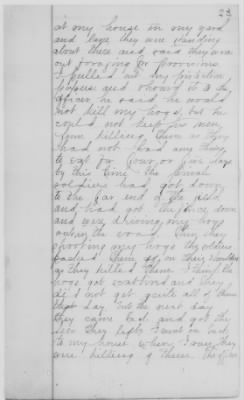 23
at my house in my yard
and says they were standing
about there and said they were
out foraging for provisions
I pulled out my protection
papers and showed it to the
officer he said he would
not kill my hogs, but he
could not keep his men
from killing them as they
had not had any thing
to eat for four or five days
by this time the
soldiers had got down
to the far end of the field
and had got the fence down
and were driving my hogs
out in the road. Then they
shooting my hogs the soldiers
packed them off on their shoulders
as they killed them I think the
hogs got scattered and they
did not get quite all of them
that day but the next day
they came back and got the
rest they left. I went on back
to my house when I saw they
were killing of them. The officer